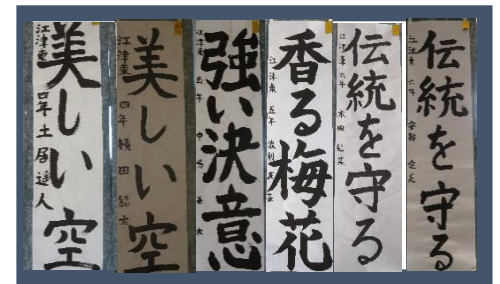 美しい空
江津東 四年 土居
美しい空
江津東 四年
強い決意
江津東 五年
香る梅花
江津東 五年
伝統を守る
江津東 六年 本田
伝統を守る
江津東 六年 安部